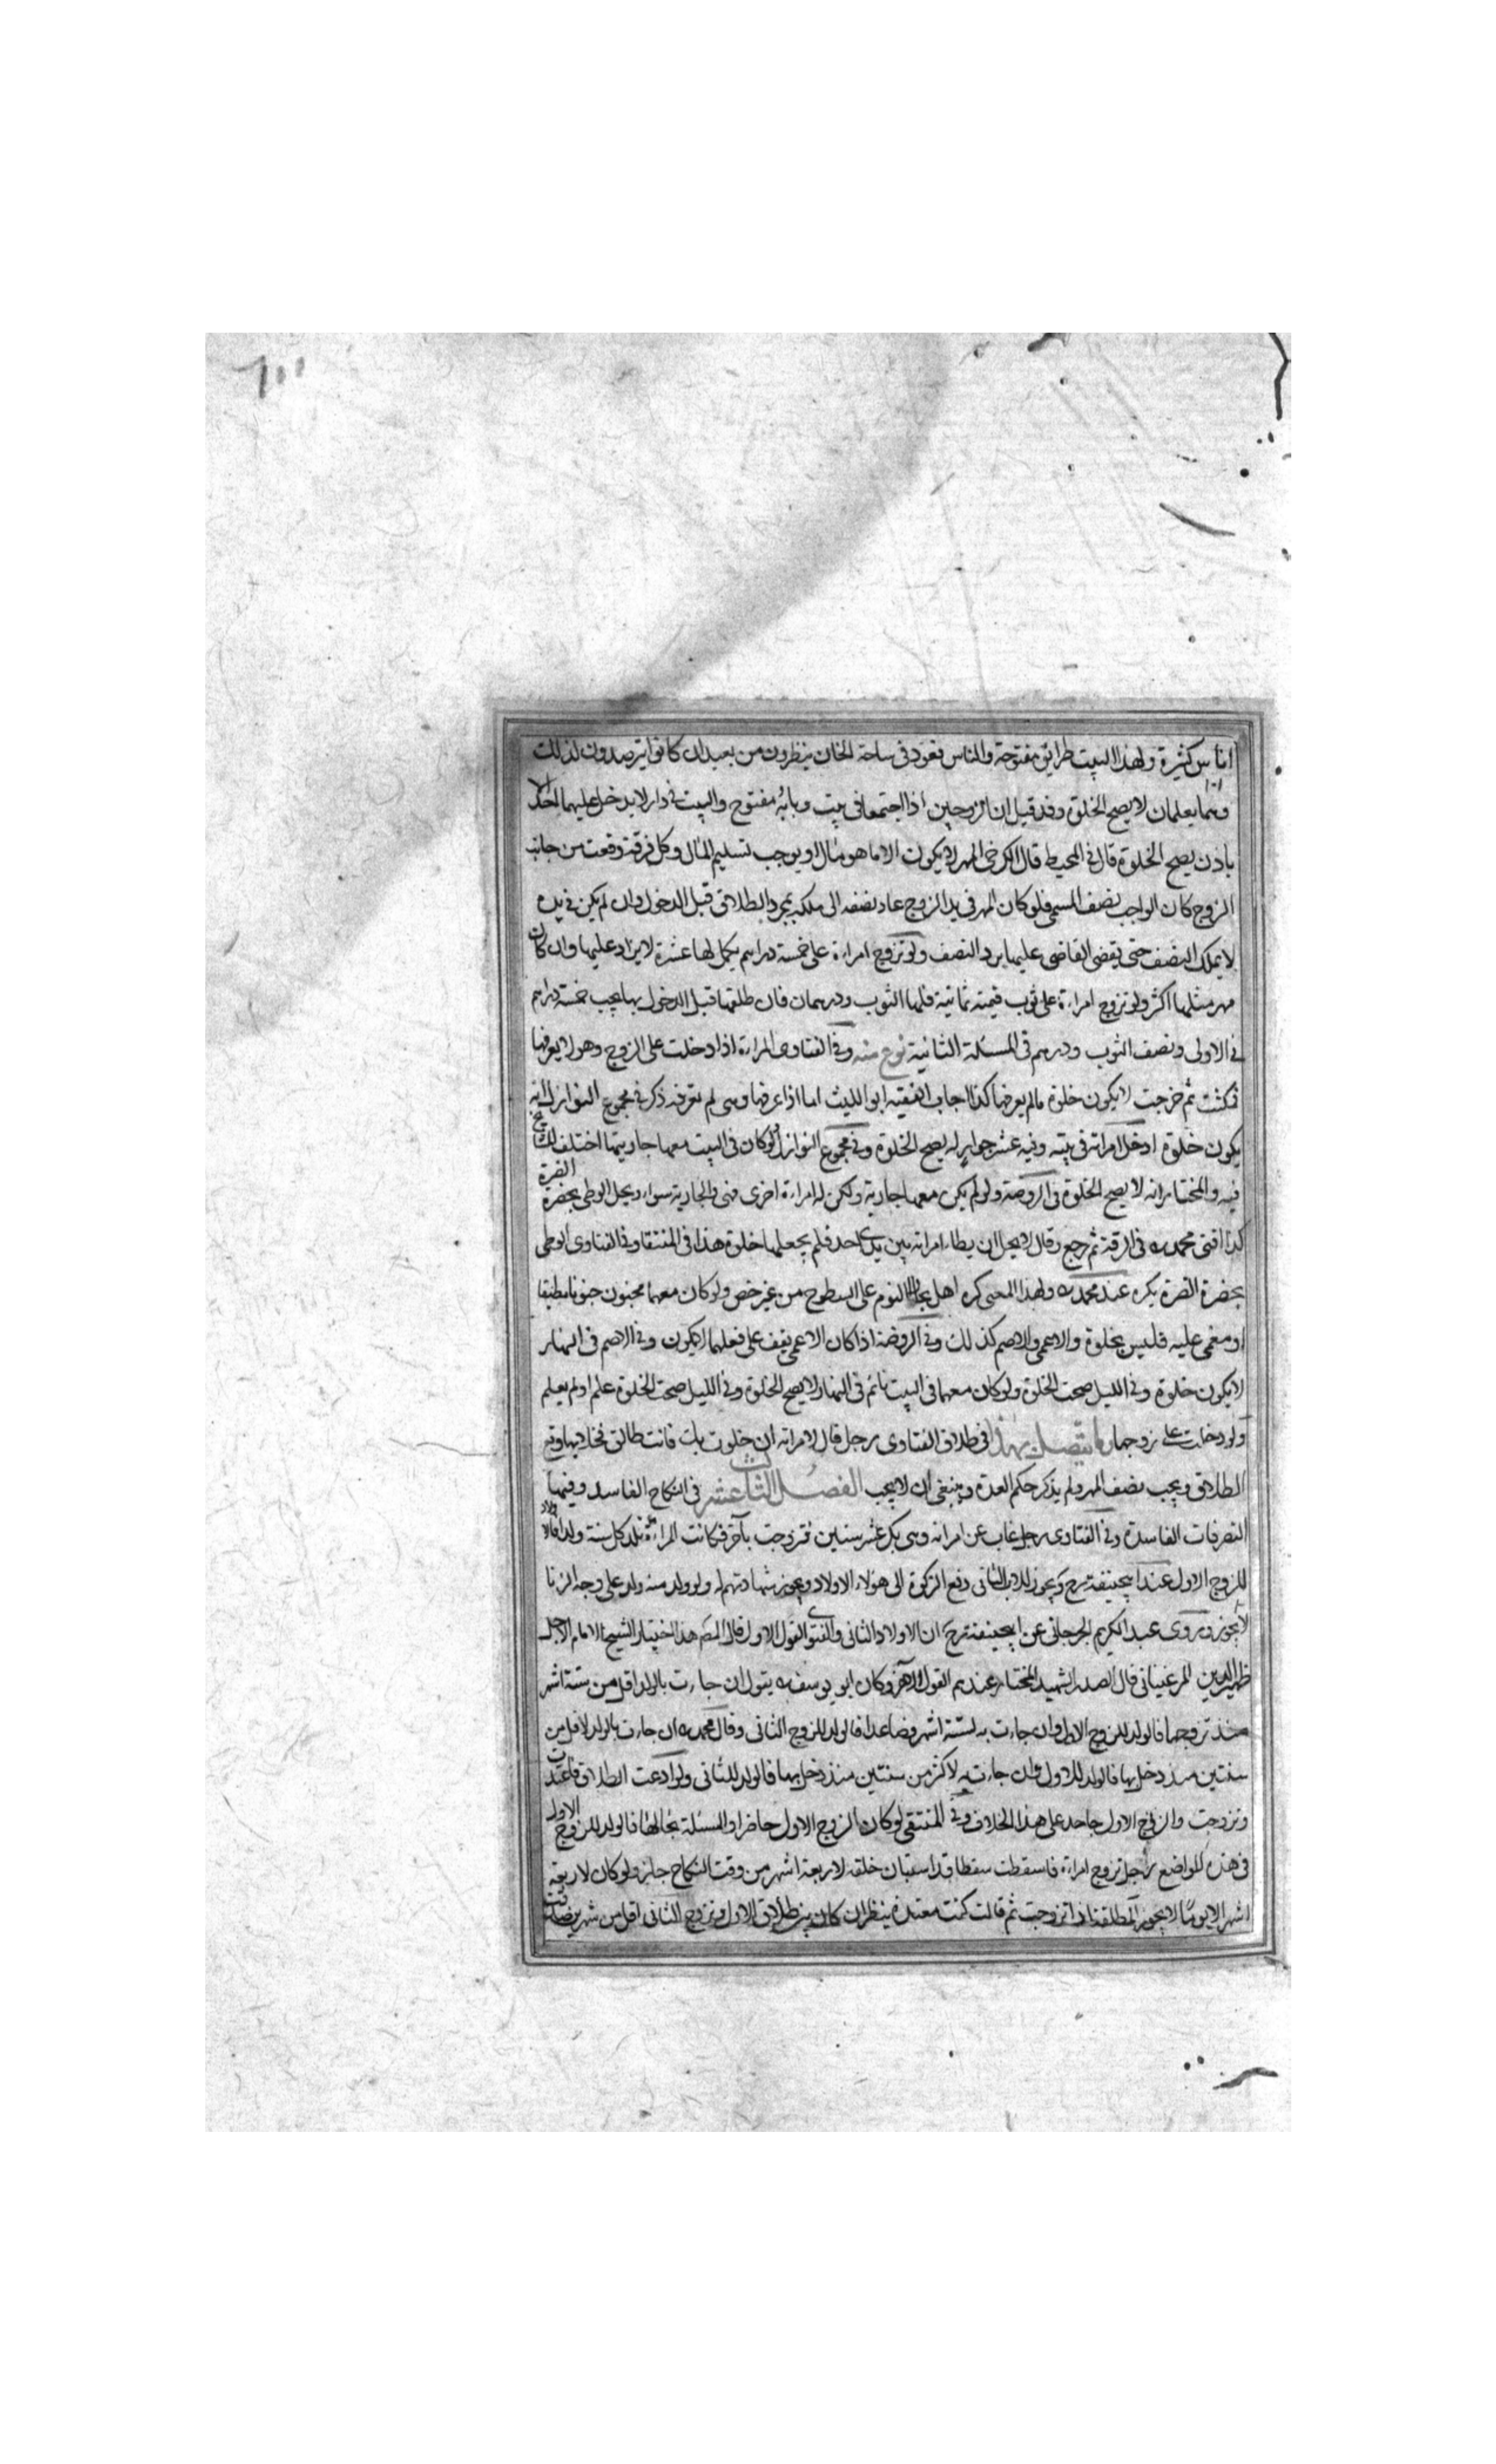 ١٠٠
اناس كثيرة ولهذا البيت طرايق مفتوحة والناس قعود فى ساحة الخان ينظرون من بعيد ان كانوا يترصدون لذلك
وهما يعلمان لا يصح الخلوة وقد قيل ان الزوجين اذا اجتمعا فى بيت وبابه مفتوح والبيت فى دار لا يدخل عليهما احد الا
باذن يصح الخلوة قال فى المحيط قال الكرخى المهر لا يكون الا ما هو مال او يوجب تسليم المال وكل فرقة وقعت من جانب
الزوج كان الواجب نصف المسمى فلو كان المهر فى يد الزوج عاد نصفه الى ملكه بمجرد الطلاق قبل الدخول وان لم يكن فى يده
لا يملك النصف حتى يقضى القاضى عليها برد النصف ولو تزوج امراءة على خمسة دراهم يكمل لها عشرة لا يزاد عليها وان كان
مهر مثلها اكثر ولو تزوج امراءة على ثوب قيمته ثمانية فلها الثوب ودرهمان فان طلقها قبل الدخول بها يجب خمسة دراهم
فى الاولى ونصف الثوب ودرهم فى المسئلة الثانية نوع منه وفى الفتاوى المراءة اذا دخلت على الزوج وهو لا يعرفها
فمكثت ثم خرجت لا يكون خلوة ما لم يعرفها كذا اجاب الفقيه ابو الليث اما اذا عرفها وهى لم تعرفه ذكر فى مجموع النوازل انه
يكون خلوة ادخل امراته فى بيته وفيه عشر جوار له يصح الخلوة وفى مجموع النوازل ولو كان فى البيت معها جاريتها اختلف
فيه والمختار انه لا يصح الخلوة فى الروضة ولو لم يكن معها جارية ولكن له امراءة اخرى فهى والجارية سواء ويحل الوطى بحضرة الضرة
كذا افتى محمد فى الرقة ثم رجع وقال لا يحل ان يطاء امراته بين يدى احد فلم يجعلها خلوة هذا فى المنتقا وفى الفتاوى الوطى
بحضرة الضرة يكره عند محمد ولهذا المعنى كره اهل النوم على السطوح من غير خص ولو كان معهما مجنون جنونا مطبقا
او مغمى عليه فليس بخلوة والاعمى والاصم كذلك وفى الروضة اذا كان الاعمى يقف على فعلهما لا يكون وفى الاصم فى النهار
لا يكون خلوة وفى الليل صحت الخلوة ولو كان معهما فى البيت نائم فى النهار لا يصح الخلوة وفى الليل صحت الخلوة علم او لم يعلم
ولو دخلت على زوجها وما يتصل بهذا فى طلاق الفتاوى رجل قال لامراته ان خلوت بك فانت طالق فخلا بها وقع
الطلاق ويجب نصف المهر ولم يذكر حكم العدة وينبغى ان لا يجب الفصل الثالث عشر فى النكاح الفاسد وفيها
التصرفات الفاسدة وفى الفتاوى رجل غاب عن امراته وهى بكر عشر سنين فتزوجت بآخر فكانت المراءة تلد كل سنة ولدا فالاولاد
للزوج الاول عند ابيحنيفة رح ويجوز للاب الثانى دفع الزكوة الى هؤلاء الاولاد ويجوز شهادتهم له ولو ولد منه ولد على وجه الزنا
لا يجوز وروى عبد الكريم الجرجانى عن ابيحنيفة رح ان الاولاد للثانى والفتوى القول الاول قال المص هذا اختيار الشيخ الامام الاجل
ظهير الدين المرغينانى قال الصدر الشهيد المختار عندهم القول الاخر وكان ابو يوسف يقول ان جاءت بالولد اقل من ستة اشهر
منذ تزوجها فالولد للزوج الاول وان جاءت به لستة اشهر فصاعدا فالولد للزوج الثانى وقال محمد ان جاءت بالولد لاقل من
سنتين منذ دخل بها فالولد للاول وان جاءت به لاكثر من سنتين منذ دخل بها فالولد للثانى ولو ادعت الطلاق فاعتدت
وتزوجت والزوج الاول جاحد على هذا الخلاف وفى المنتقى لو كان الزوج الاول حاضرا والمسئلة بحالها فالولد للزوج الاول
فى هذه المواضع رجل تزوج امراءة فاسقطت سقطا قد استبان خلقه لاربعة اشهر من وقت النكاح جاز ولو كان لاربعة
اشهر الا يوما لا يجوز المطلقة اذا تزوجت ثم قالت كنت معتدة ينظر ان كان بين طلاق الاول وتزوج الثانى اقل من شهرين